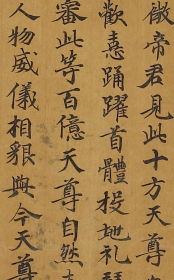 徽帝君見此十方天尊
歡憙踊躍首體投地礼
審此等百億天尊自然
人物威儀相貌與今天尊